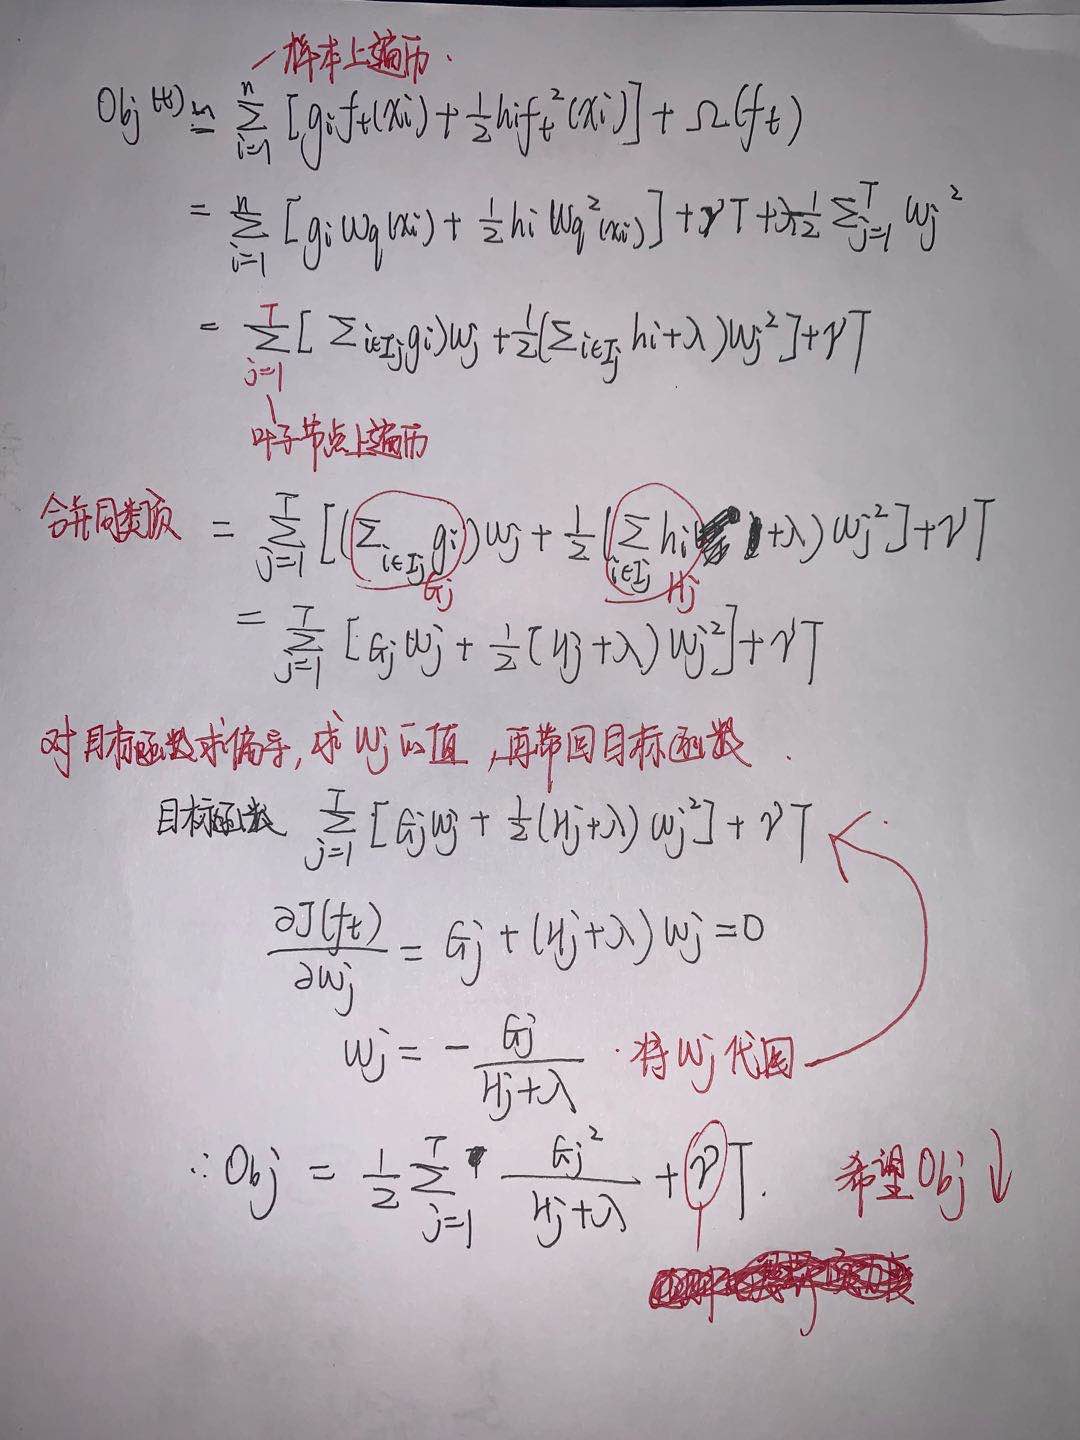 样本上遍历.
Obj^(t) ≃ Σ_{i=1}^{n} [g_i f_t(x_i) + 1/2 h_i f_t^2(x_i)] + Ω(f_t)
= Σ_{i=1}^{n} [g_i w_q(x_i) + 1/2 h_i w_q^2(x_i)] + γT + λ 1/2 Σ_{j=1}^{T} w_j^2
= Σ_{j=1}^{T} [Σ_{i∈I_j} g_i)w_j + 1/2(Σ_{i∈I_j} h_i + λ)w_j^2] + γT
叶子节点上遍历
合并同类项 = Σ_{j=1}^{T} [(Σ_{i∈I_j} g_i)w_j + 1/2(Σ_{i∈I_j} h_i + λ)w_j^2] + γT
G_j H_j
= Σ_{j=1}^{T} [G_j w_j + 1/2(H_j + λ)w_j^2] + γT
对目标函数求偏导, 求 w_j 的值, 再带回目标函数.
目标函数 Σ_{j=1}^{T} [G_j w_j + 1/2(H_j + λ)w_j^2] + γT
∂J(f_t)/∂w_j = G_j + (H_j + λ)w_j = 0
w_j = - G_j/(H_j + λ) . 将 w_j 代回
∴ Obj = 1/2 Σ_{j=1}^{T} G_j^2/(H_j + λ) + γT. 希望 Obj ↓